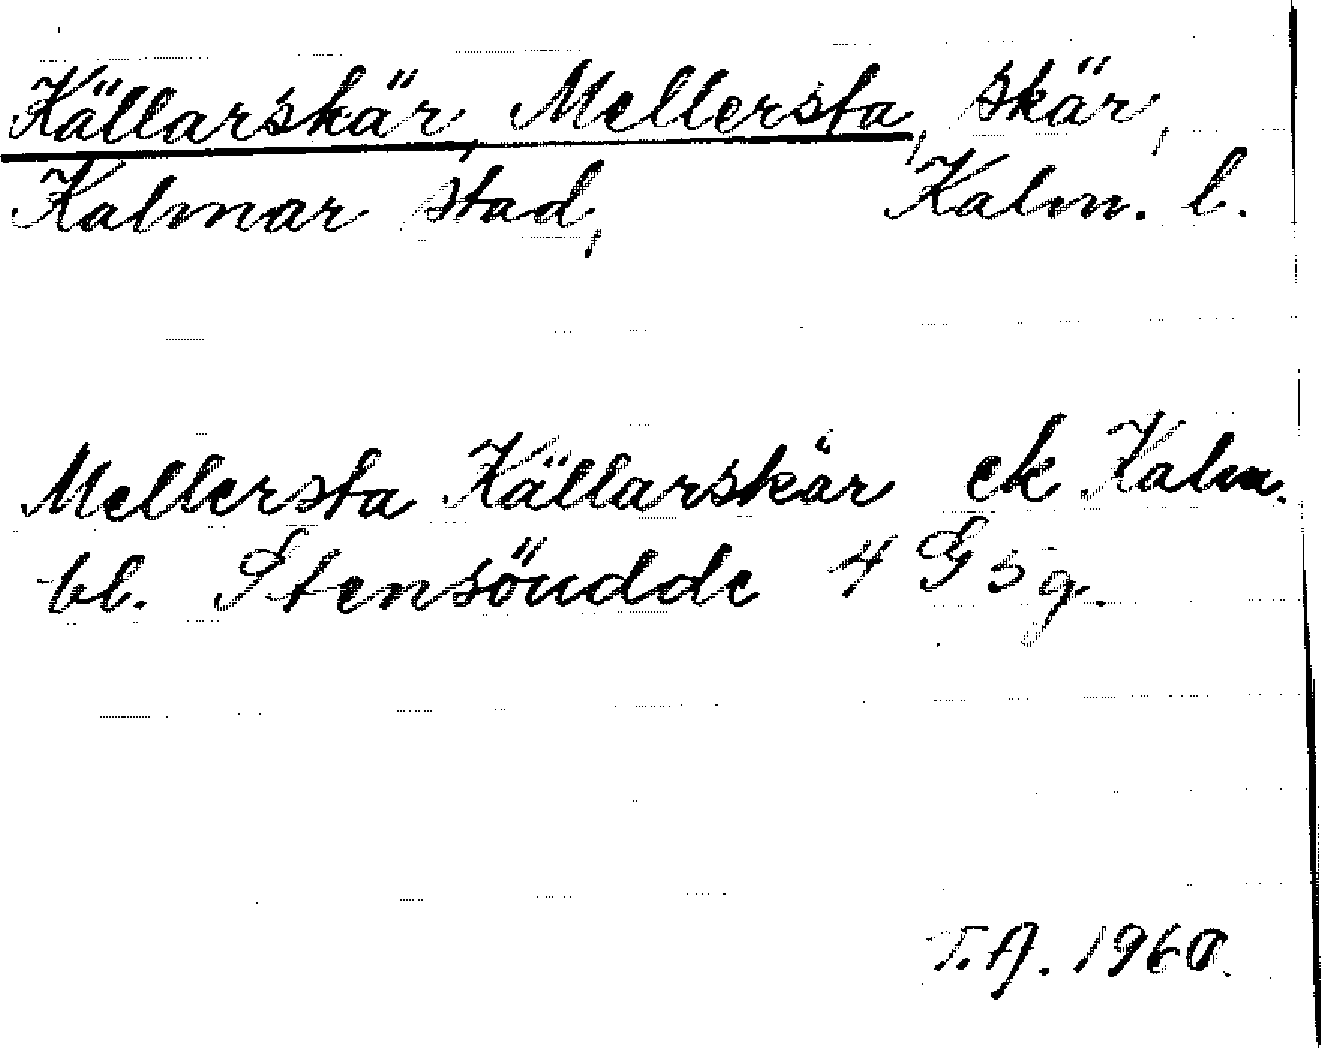 Källarskär, Mellersta, skär,
Kalmar stad, Kalm. l.
Mellersta Källarskär ek Kalm.
bl. Stensöudde 4 G 5 g.
T.A. 1960.